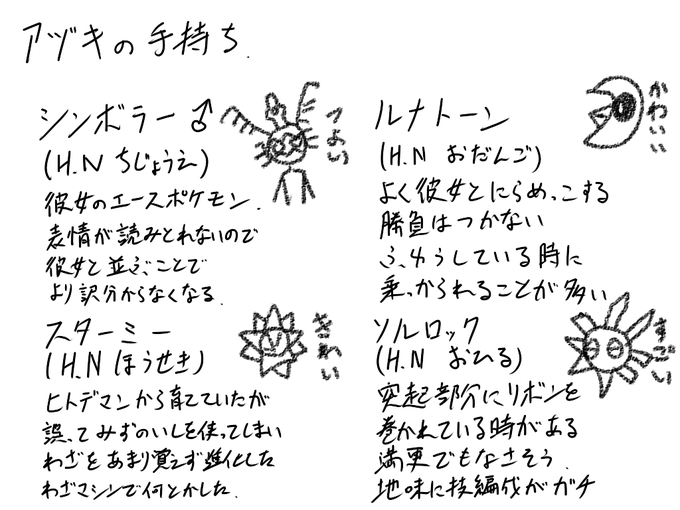 アヅキの手持ち.
シンボラー♂
(H.N ちじょうえ)
つよい
彼女のエースポケモン.
表情が読みとれないので
彼女と並ぶことで
より訳分からなくなる.
スターミー
(H.N ほうせき)
きれい
ヒトデマンから育てていたが
誤ってみずのいしを使ってしまい
わざをあまり覚えず進化した
わざマシンで何とかした.
ルナトーン
(H.N おだんご)
かわいい
よく彼女とにらめっこする
勝負はつかない
ふゆうしている時に
乗っかられることが多い
ソルロック
(H.N おひる)
すごい
突起部分にリボンを
巻かれている時がある
満更でもなさそう.
地味に技編成がガチ